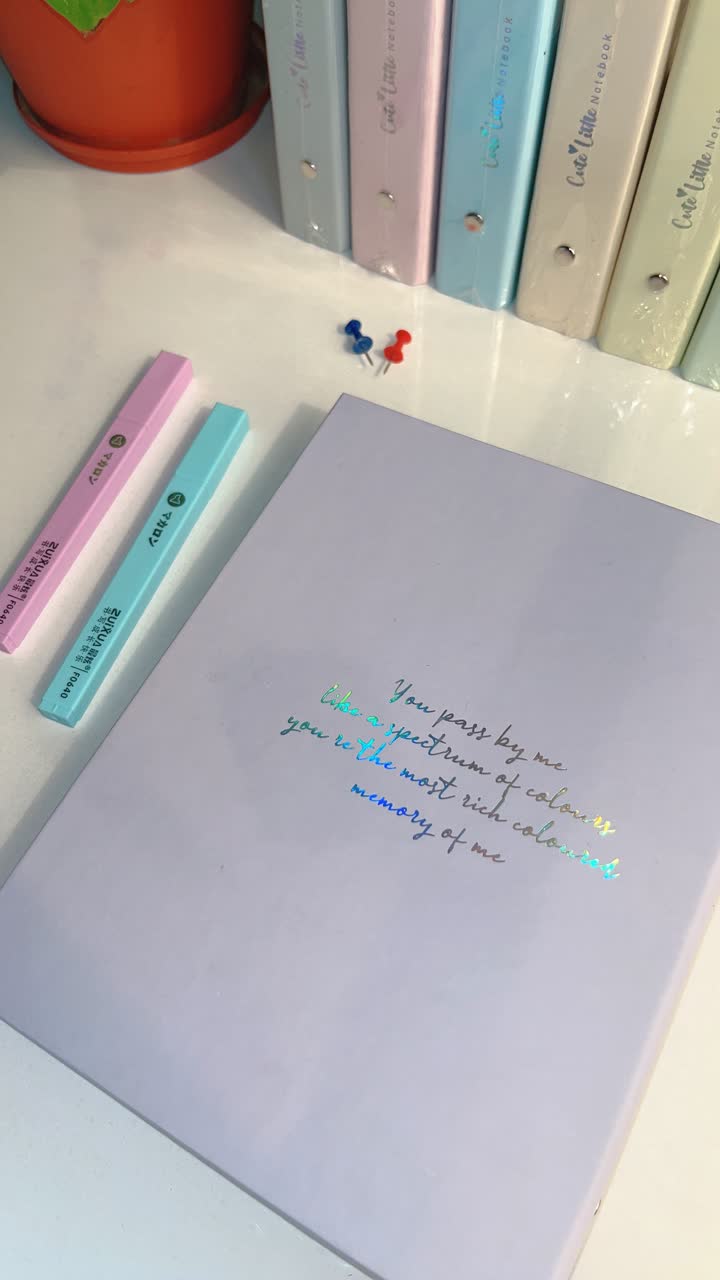 Cute Little Notebook
Cute Little Notebook
Cute Little Notebook
Cute Little Notebook
マカロン
ZUIXUA
F0640
マカロン
ZUIXUA
F0640
You pass by me
like a spectrum of colours
you're the most rich coloured
memory of me